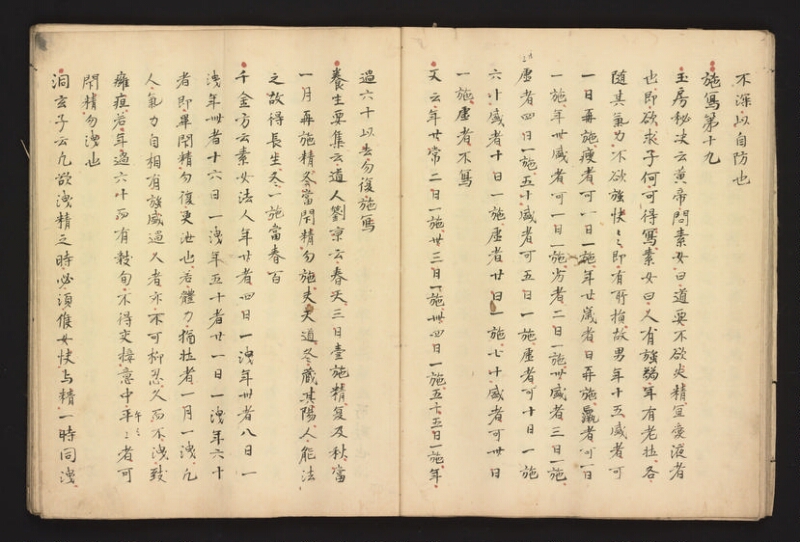 不深以自防也
施寫第十九
玉房秘决云黄帝問素女曰道要不欲失精宜愛液者
也即欲求子何可得寫素女曰人有強弱年有老壯各
隨其氣力不欲強快〻即有所損故男年十五盛者可
一日再施瘦者可一日一施年廿盛者日再施羸者可一日
一施年卅盛者可一日一施劣者二日一施卌盛者三日一施
虚者四日一施五十盛者可五日一施虚者可十日一施
六十盛者十日一施虚者廿日一施七十盛者可卅日
一施虚者不寫
又云年廿常二日一施卅三日一施卌四日一施五十五日一施年
過六十以去勿復施寫
養生要集云道人劉京云春天三日壹施精夏及秋當
一月再施精冬當閇精勿施夫天道冬藏其陽人能法
之故得長生冬一施當春百
千金方云素女法人年廿者四日一洩年卅者八日一
洩年卌者十六日一洩年五十者廿一日一洩年六十
者即畢閇精勿復更洩也若體力猶壯者一月一洩凡
人氣力自相有強盛過人者亦不可抑忍久而不洩致
癰疽若年過六十而有數旬不得交接意中平〻者可
閇精勿洩也
洞玄子云凡欲洩精之時必須侯女快与精一時同洩